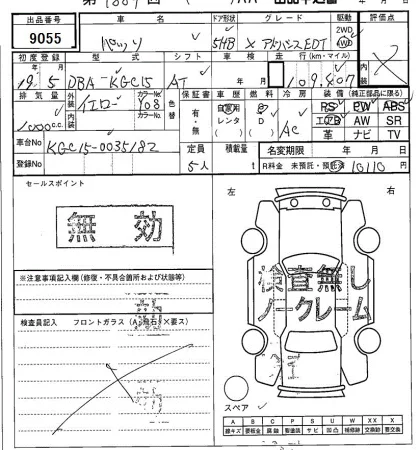 出品番号 車名 ドア形状 グレード 駆動 評価点
9055 パッソ 5HB X アドバンスEDT 2WD 4WD X
初度登録 型式 シフト 車検 走行(km・マイル) 内装
19年5月 DBA-KGC15 AT 年 月 109,407
排気量 外装 カラーNo. 色替 保証書 車歴 燃料 冷房 装備(純正部品に限る)
1000cc イエロー Y08 有・無 自家用 レンタ G D AC PS PW ABS
内装 カラーNo. エアB AW SR
車台No. KGC15-0035182 革 ナビ TV
登録No. 定員 積載量 名変期限 年 月 日
5人 t R料金 未預託・預託済 10110 円
セールスポイント 左 右
無効
検査無し
ノークレーム
※注意事項記入欄(修復・不具合箇所および状態等)
検査員記入 フロントガラス(A、飛石、X要ス)
スペア
A B C P S U W XX X
線キズ 要板金 腐蝕 要塗装 サビ 凹凸 補修跡 交換跡 要交換